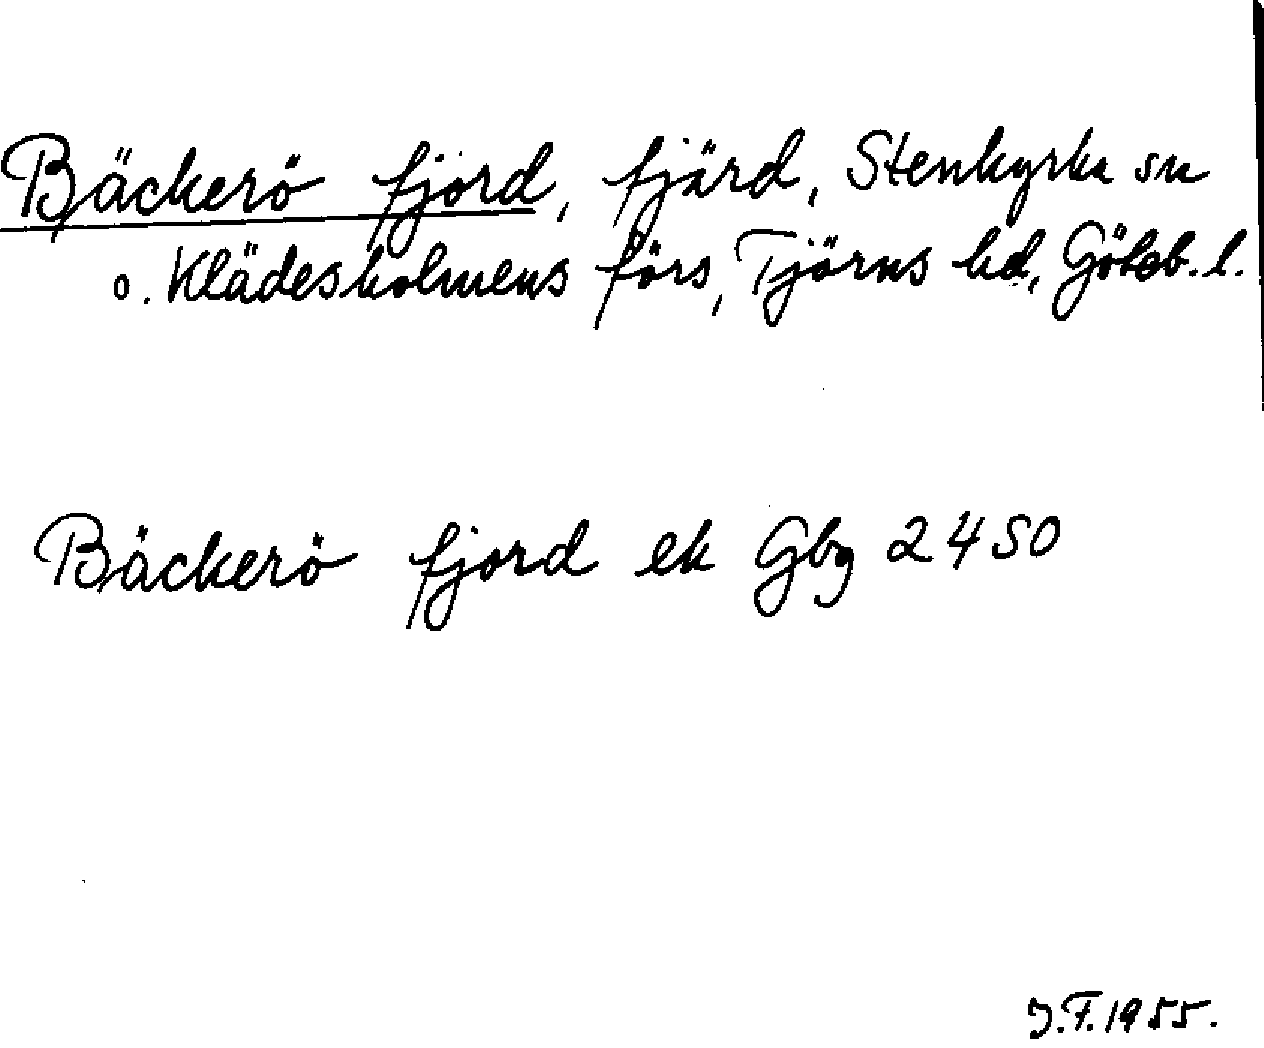 Bäckerö fjord, fjärd, Stenkyrka sn
o. Klädesholmens förs, Tjörns hd, Göteb. l.
Bäckerö fjord ek Gbg 2450
J.F. 1955.